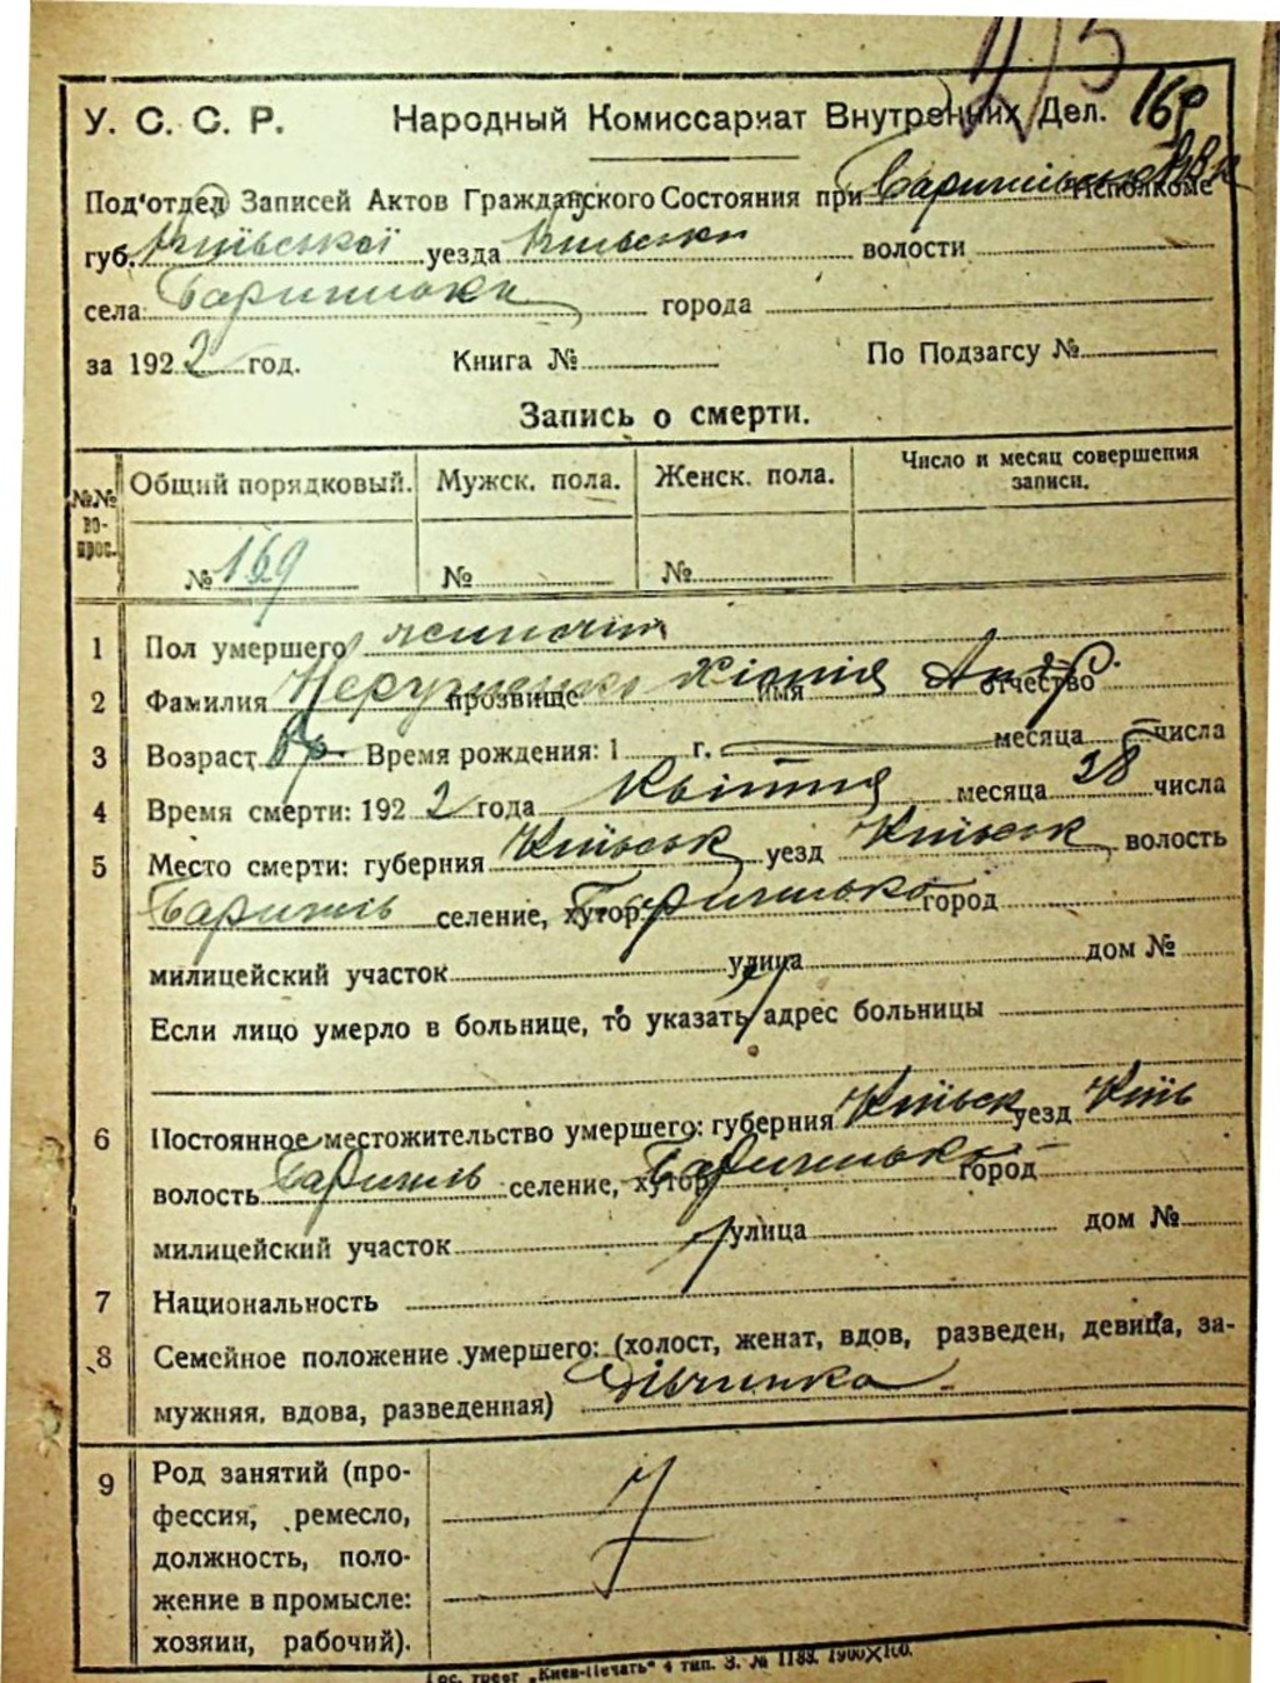 215
169
У. С. С. Р. Народный Комиссариат Внутренних Дел.
Под'отдел Записей Актов Гражданского Состояния при Исполкоме
губ. Київської уезда Київськ волости
села города
за 1922 год. Книга № По Подзагсу №
Запись о смерти.
№№ во-прос. Общий порядковый. Мужск. пола. Женск. пола. Число и месяц совершения записи.
№ 169 № №
1 Пол умершего
2 Фамилия прозвище имя Андр. отчество
3 Возраст Время рождения: 1 г. месяца числа
4 Время смерти: 1922 года Квітня месяца 28 числа
5 Место смерти: губерния Київськ уезд Київськ волость
селение, хутор город
милицейский участок улица дом №
Если лицо умерло в больнице, то указать адрес больницы
6 Постоянное местожительство умершего: губерния Київськ уезд Київ
волость селение, хутор город
милицейский участок улица дом №
7 Национальность
8 Семейное положение умершего: (холост, женат, вдов, разведен, девица, за-
мужняя, вдова, разведенная) Дівчинка
9 Род занятий (про-
фессия, ремесло,
должность, поло-
жение в промысле:
хозяин, рабочий).
Гос. трест „Киев-Печать“ 4 тип. З. № 1188. 1900×100.